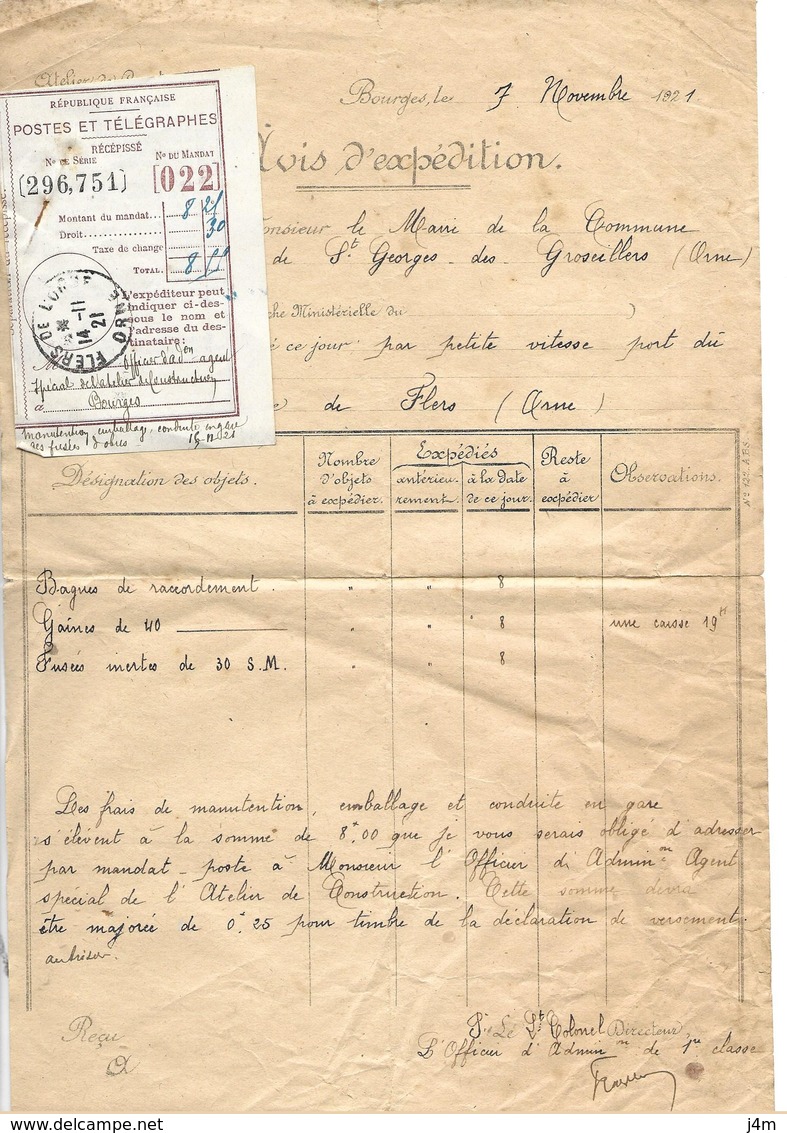 Atelier de
Bourges, le 7 Novembre 1921
Avis d'expédition.
Monsieur le Maire de la Commune
de St Georges - des - Groseillers (Orne)
che Ministérielle du
ce jour par petite vitesse port dû
de Flers (Orne)
RÉPUBLIQUE FRANÇAISE
POSTES ET TÉLÉGRAPHES
RÉCÉPISSÉ
No DE SÉRIE No DU MANDAT
(296,751) [022]
Montant du mandat... 8 25
Droit.............. 30
Taxe de change
TOTAL. 8 55
FLERS DE L'ORNE
ORNE
14 -11
21
L'expéditeur peut
indiquer ci-des-
sous le nom et
l'adresse du des-
tinataire:
M Officier d'adon agent
spécial de l'atelier de Construction
à Bourges
manutention, emballage, conduite en gare
des fusées d'obus 15-11-21
Désignation des objets. Nombre d'objets à expédier. Expédiés antérieu-rement. à la date de ce jour. Reste à expédier Observations.
No 127. ABS
Bagues de raccordement. " " 8
Gaines de 40 " " 8 une caisse 19 K
Fusées inertes de 30 S.M. " " 8
Les frais de manutention, emballage et conduite en gare
s'élèvent à la somme de 8f.00 que je vous serais obligé d'adresser
par mandat-poste à Monsieur l'Officier d'Admin on Agent
spécial de l'Atelier de Construction. Cette somme devra
être majorée de 0f.25 pour timbre de la déclaration de versement.
au trésor.
Reçu
A
P. Le Lt Colonel Directeur,
L'Officier d'Admin on de 1re classe
j4m